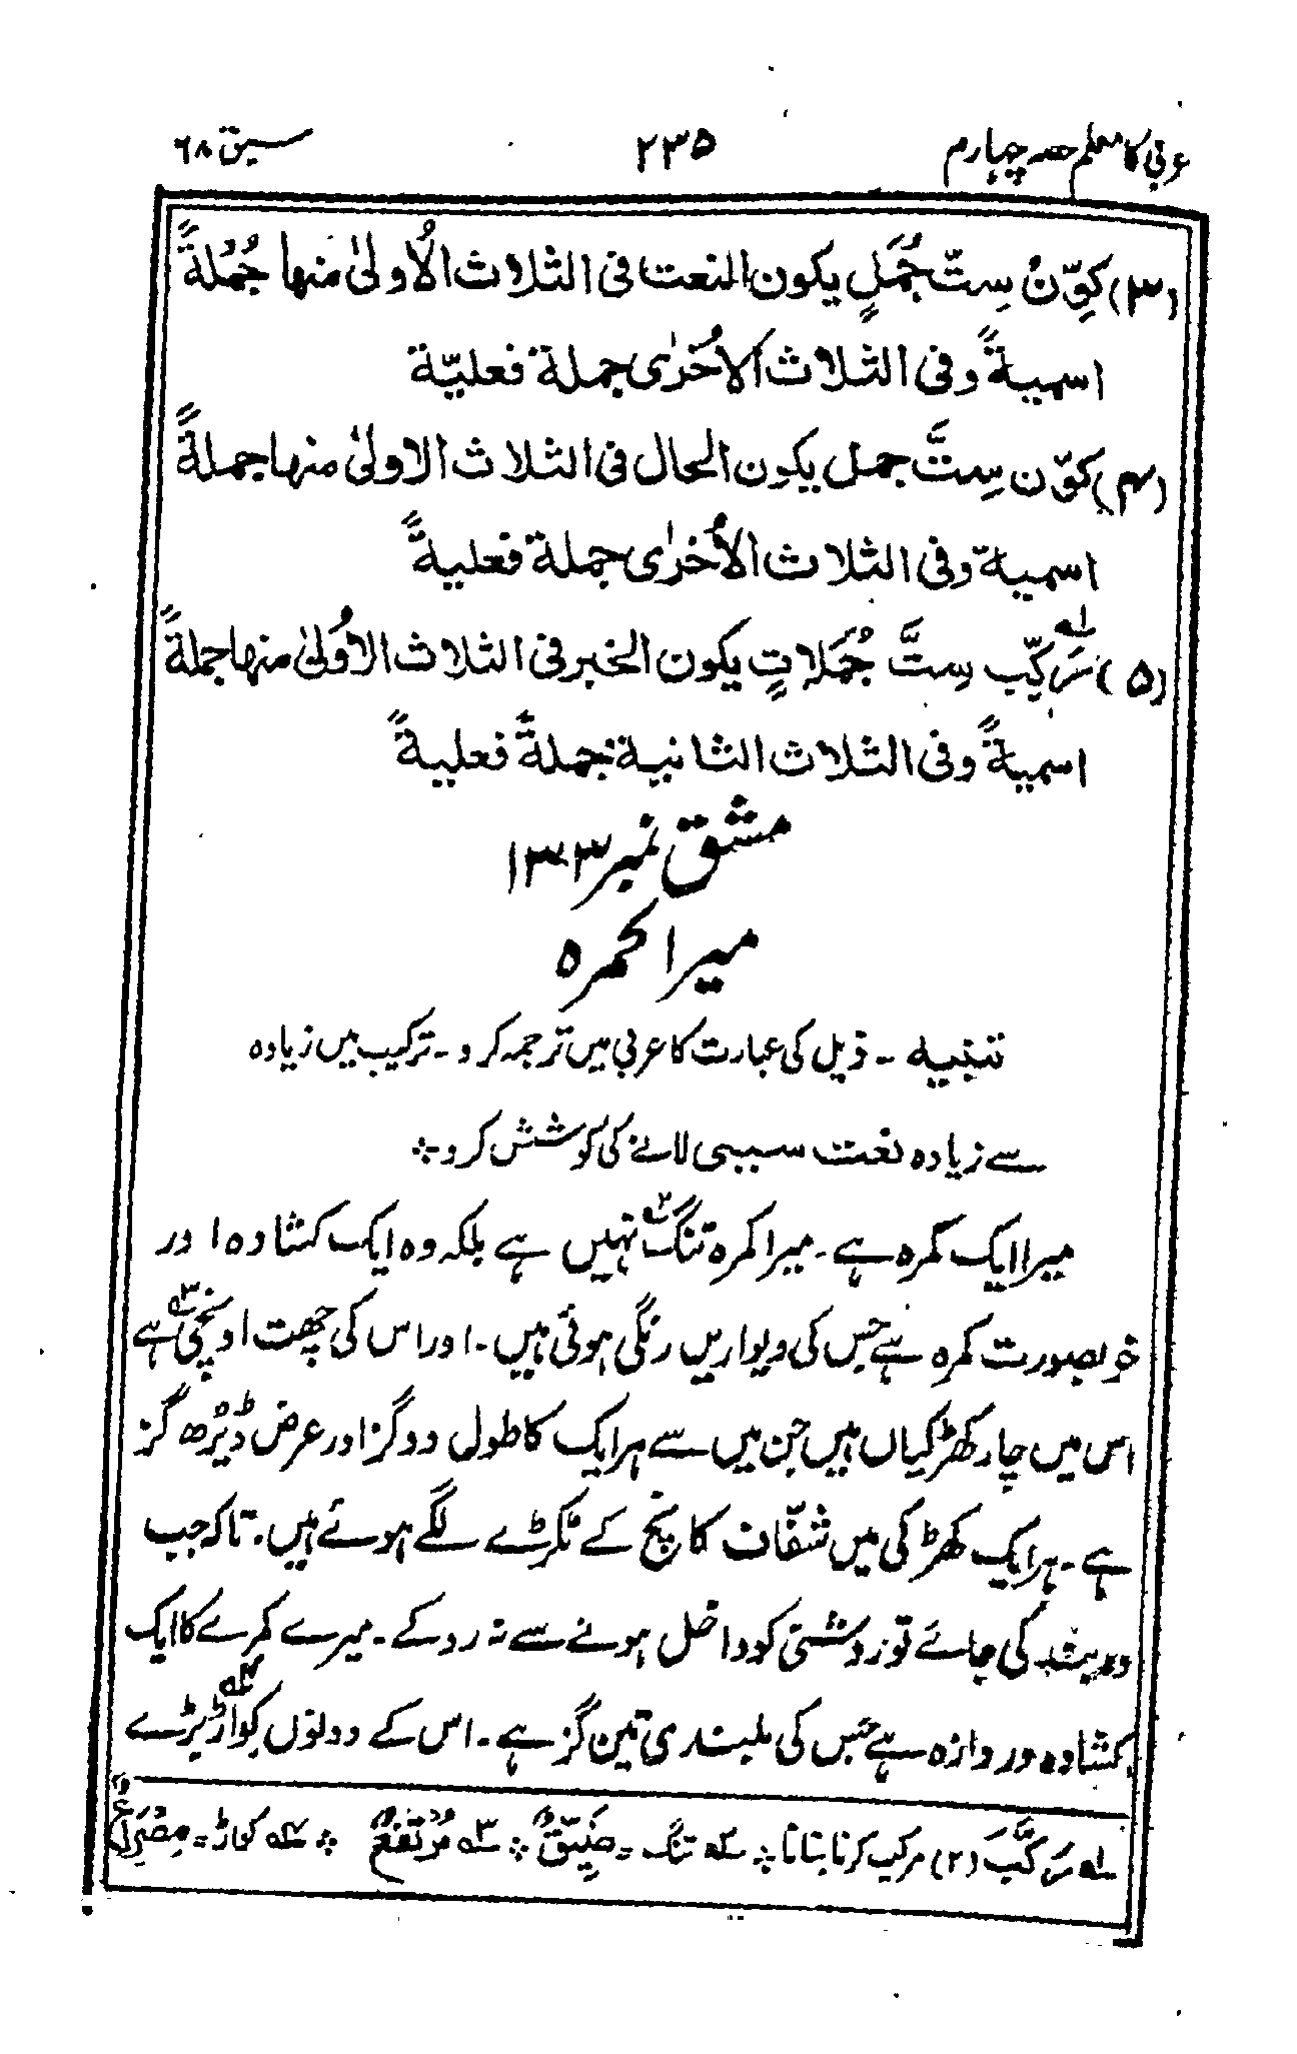 عربی کا معلم حصہ چہارم ۲۳۵ سبق ۶۸
(۳) کَوِّنْ سِتَّ جُمَلٍ يكون النعت فی الثلاث الأُولیٰ منها جُمْلةً
اسميةً وفی الثلاث الأُخرٰى جملة فعليّة
(۴) كوّن سِتَّ جمل يكون الحال فی الثلاث الاولیٰ منها جملةً
اسمية وفی الثلاث الأُخرٰى جملة فعليةً
(۵) رَكِّب لہ سِتَّ جُمَلاتٍ يكون الخبر فی الثلاث الاُولیٰ منها جملةً
اسميةً وفی الثلاث الثانية جملةً فعليةً
مشق نمبر ۱۳۳
میرا کمرہ
تنبیہ ۔ ذیل کی عبارت کا عربی میں ترجمہ کرو ۔ ترکیب میں زیادہ
سے زیادہ نعت سببی لانے کی کوشش کرو ؞
میرا ایک کمرہ ہے ۔ میرا کمرہ تنگ ۲؎ نہیں ہے بلکہ وہ ایک کشادہ اور
خوبصورت کمرہ ہے جس کی دیواریں رنگی ہوئی ہیں ۔ اور اس کی چھت اونچی ۳؎ ہے
اس میں چار کھڑکیاں ہیں جن میں سے ہر ایک کا طول دو گز اور عرض ڈیڑھ گز
ہے ۔ ہر ایک کھڑکی میں شفّاف کانچ کے ٹکڑے لگے ہوئے ہیں ۔ تاکہ جب
وہ بند کی جائے تو روشنی کو داخل ہونے سے نہ روکے ۔ میرے کمرے کا ایک
کشادہ دروازہ ہے جس کی بلندی تین گز ہے ۔ اس کے دونوں کواڑ ۴؎ بڑے
لہ رَكَّبَ (۲) مرکب کرنا بنانا ؞ ۲؎ تنگ = ضَيِّقٌ ؞ ۳؎ مُرْتَفِعٌ ؞ ۴؎ کواڑ = مِصْرَاعٌ